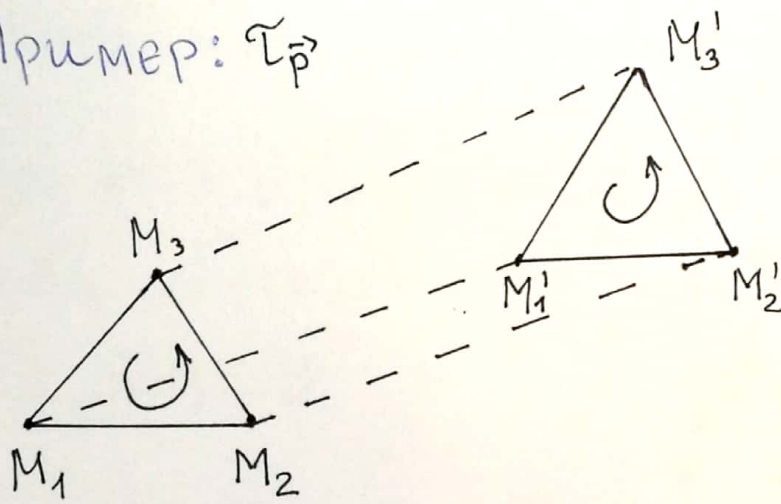 Пример: τ_p⃗
M₃'
M₃
M₁' M₂'
M₁ M₂